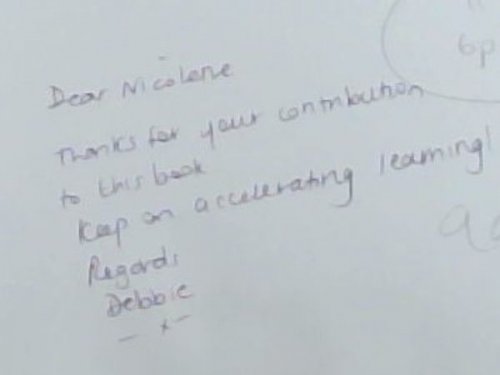 Dear Nicolene
Thanks for your contribution
to this book
Keep on accelerating learning!
Regards
Debbie
- x -
6p